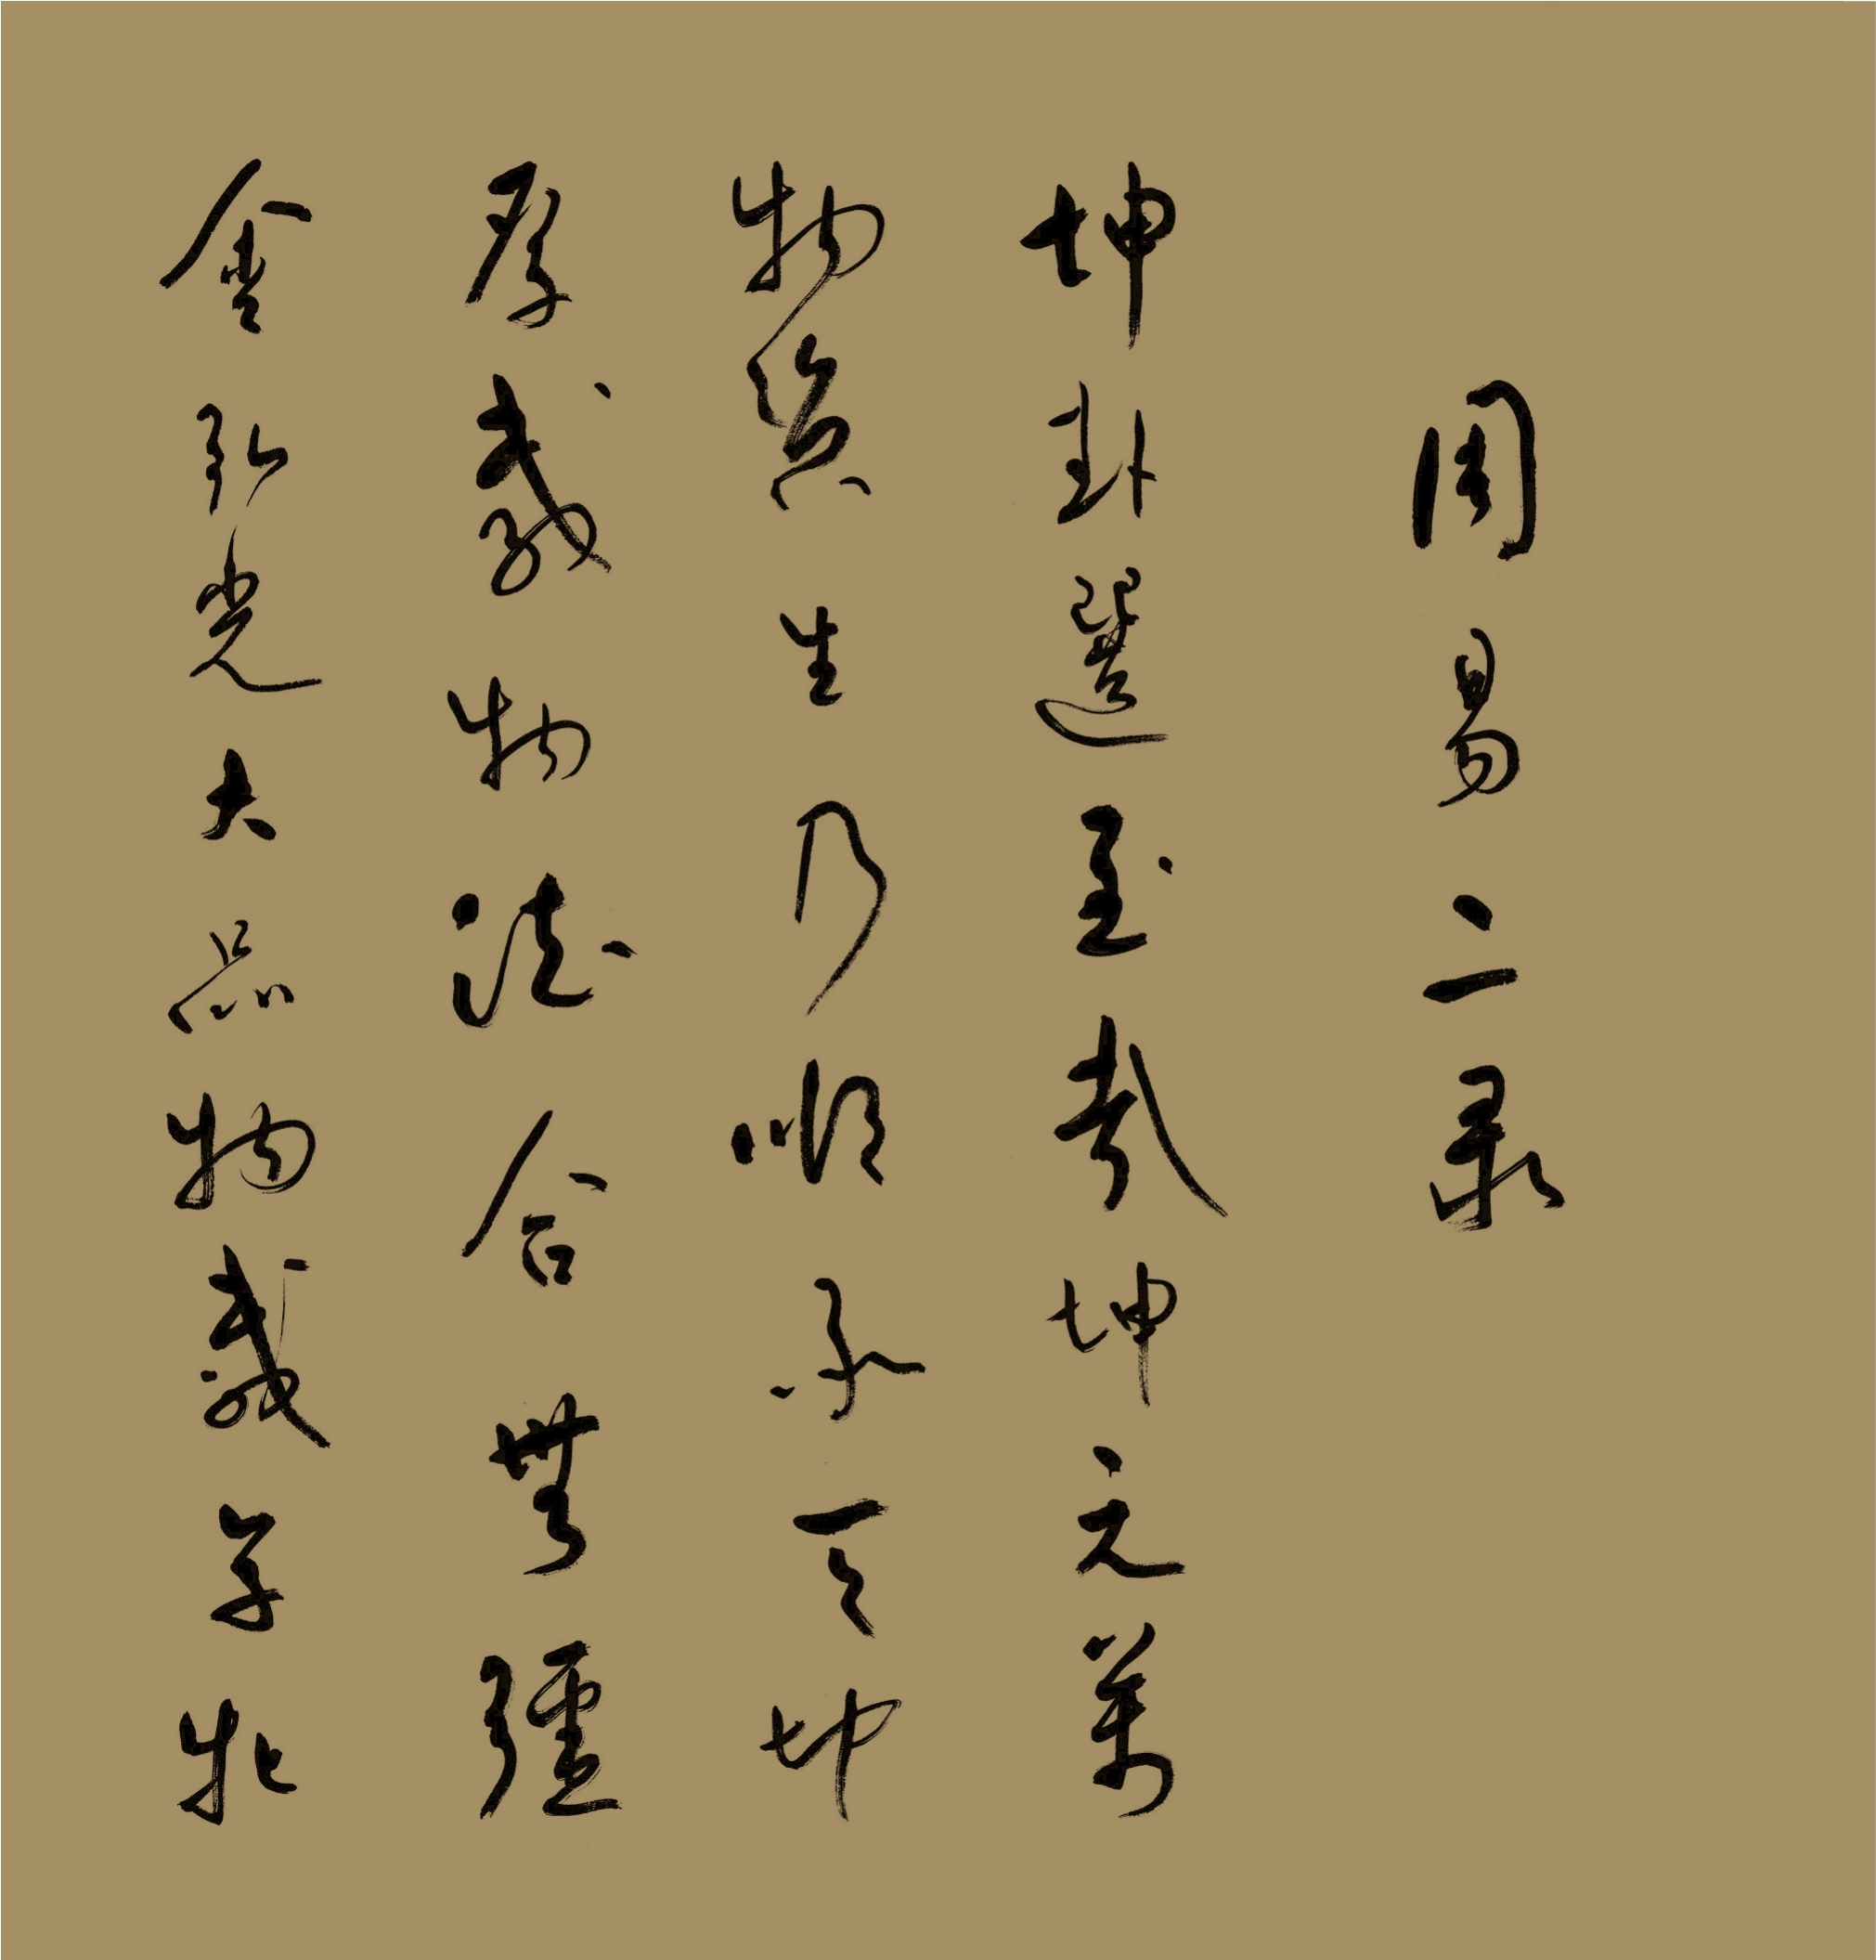 周易二录
坤卦選至哉坤元萬
物資生乃順承天坤
厚載物德合無疆
含弘光大品物咸亨牝